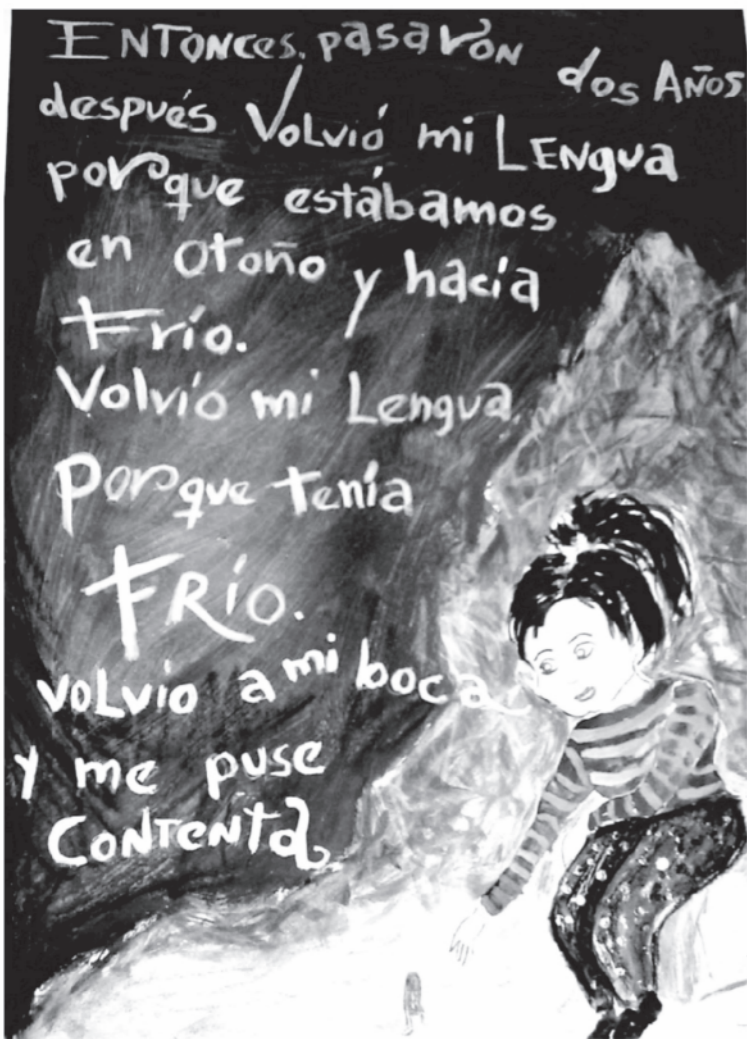 ENTONCES, pasaron dos AÑOS
después Volvió mi LENgua
porque estábamos
en otoño y hacía
Frío.
Volvío mi Lengua
Porque tenía
FRÍO.
volvio a mi boca
y me puse
CONTENTA